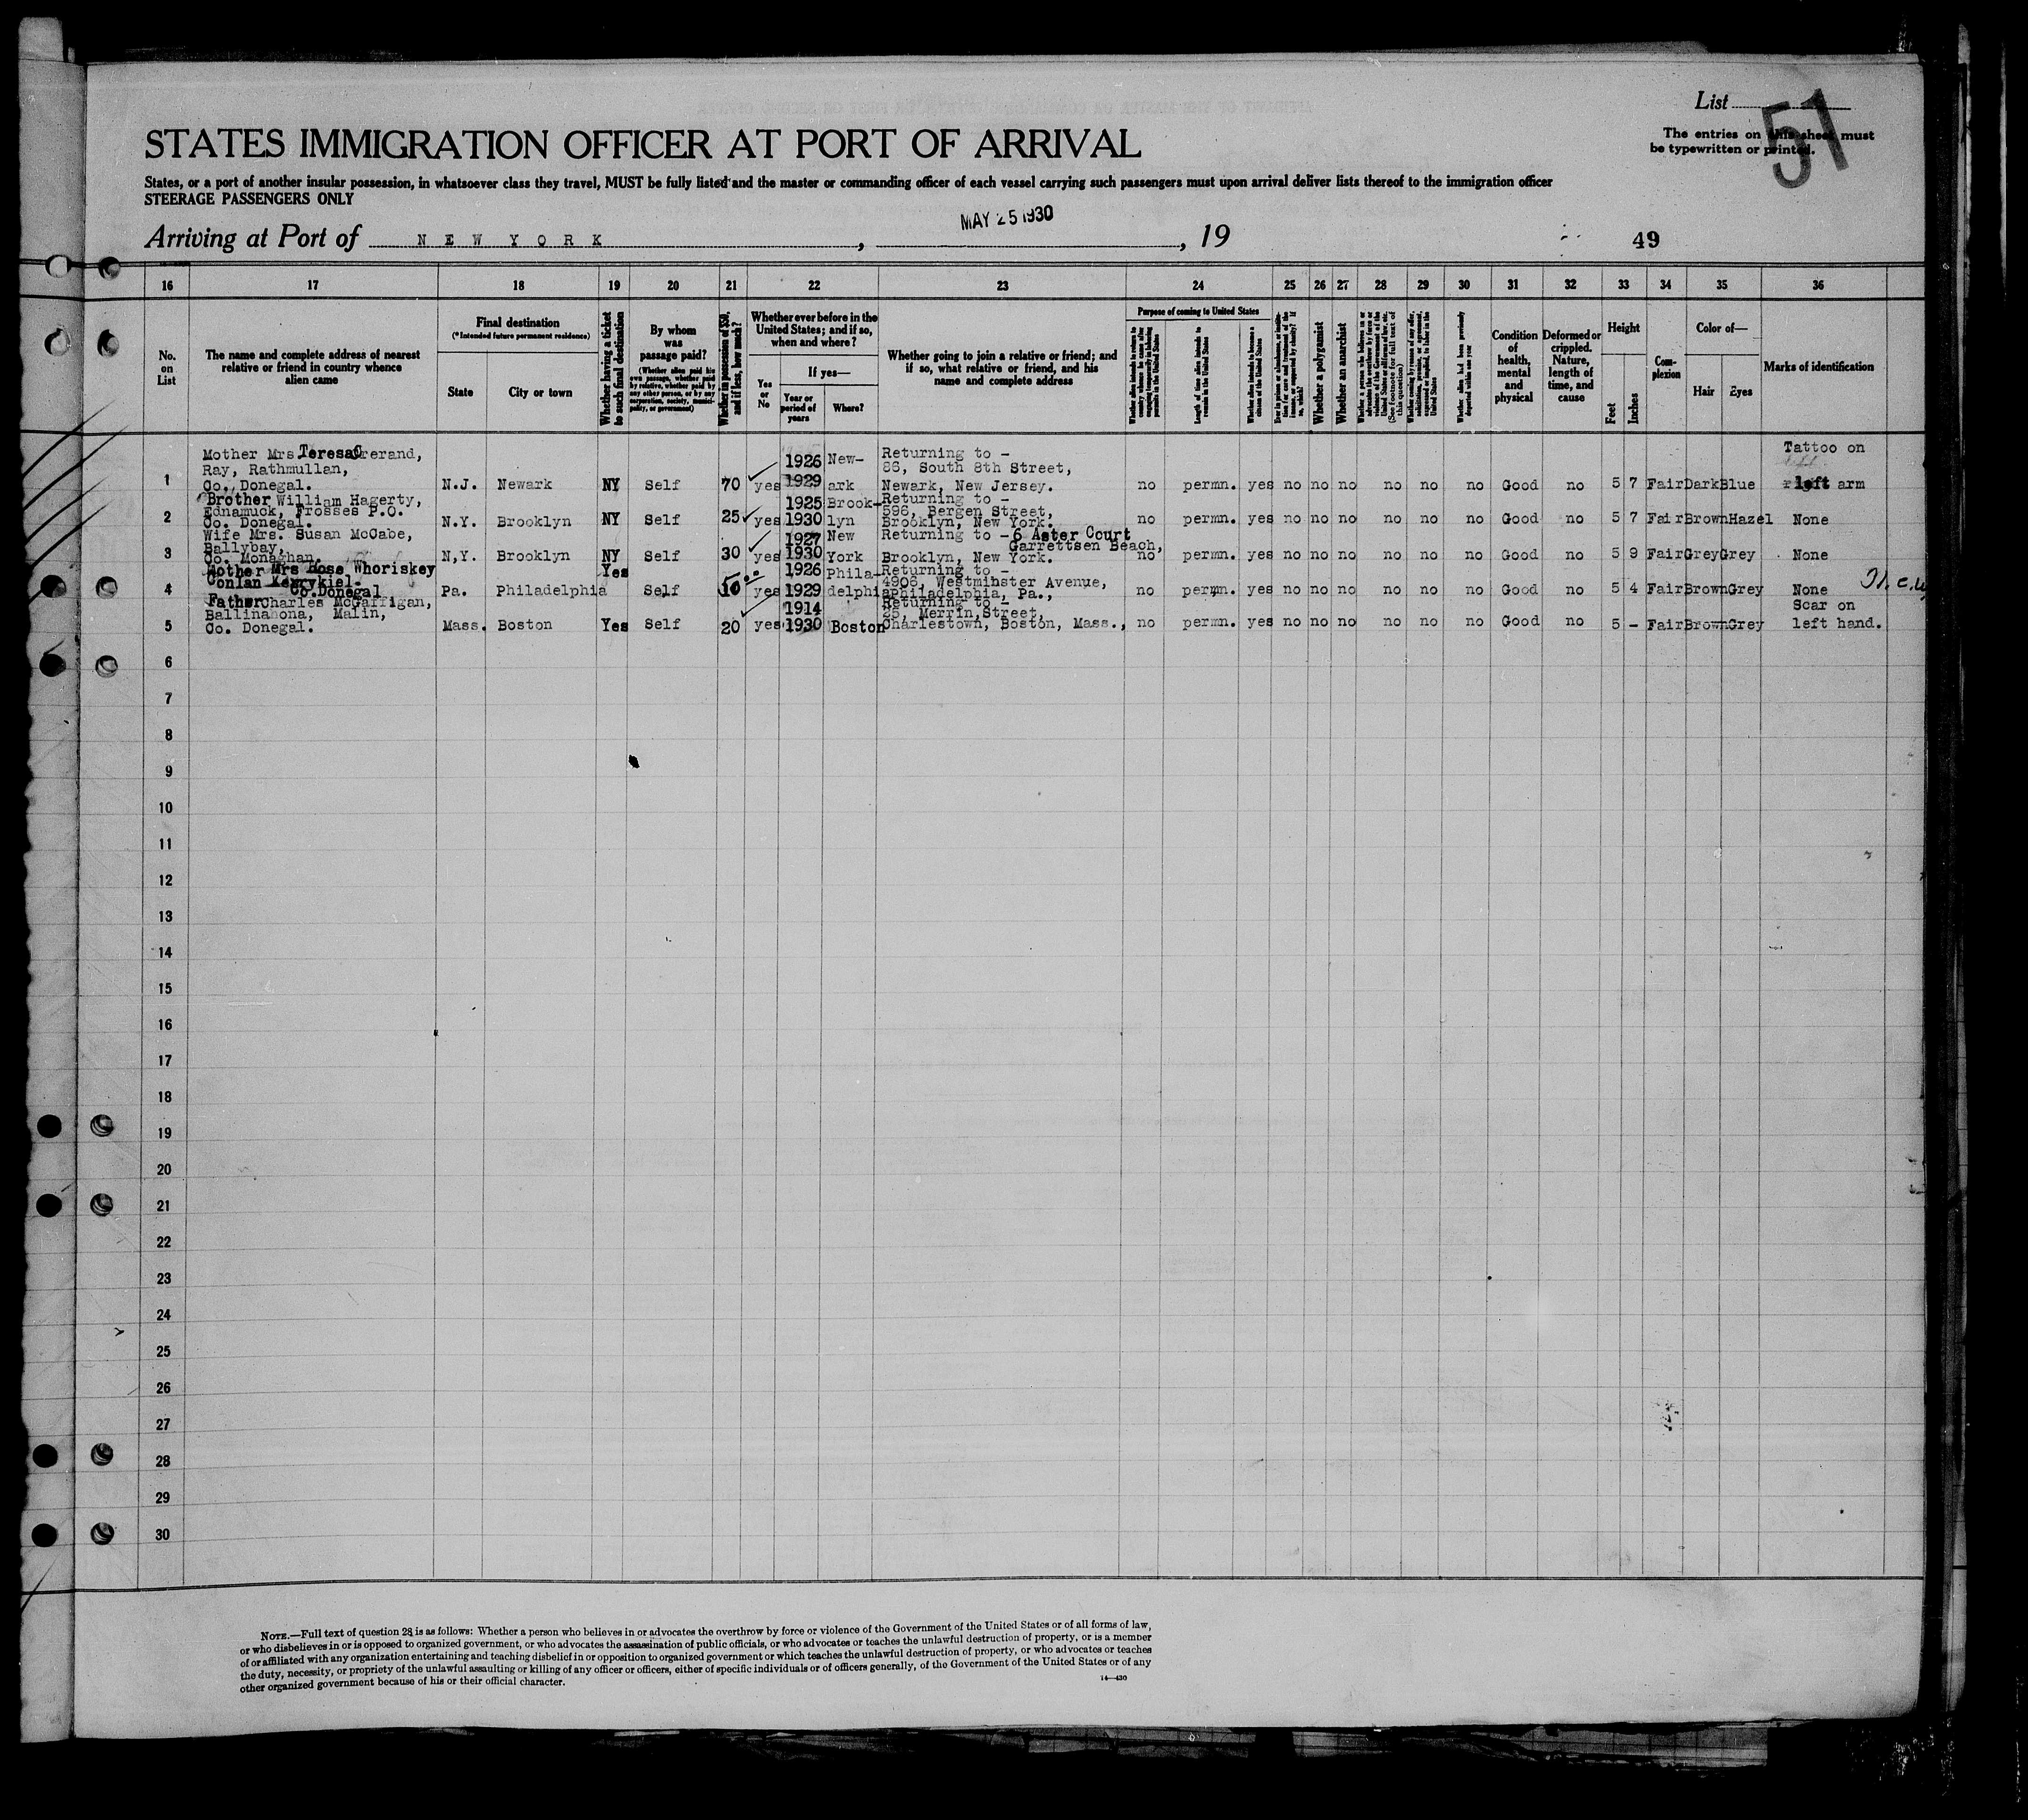 List 51
The entries on this sheet must
be typewritten or printed.
STATES IMMIGRATION OFFICER AT PORT OF ARRIVAL
States, or a port of another insular possession, in whatsoever class they travel, MUST be fully listed and the master or commanding officer of each vessel carrying such passengers must upon arrival deliver lists thereof to the immigration officer
STEERAGE PASSENGERS ONLY
Arriving at Port of NEW YORK, MAY 25 1930, 19
49
16 17 18 19 20 21 22 23 24 25 26 27 28 29 30 31 32 33 34 35 36
No. on List
The name and complete address of nearest relative or friend in country whence alien came
Final destination
(*Intended future permanent residence)
State
City or town
Whether having a ticket to such final destination
By whom was passage paid?
(Whether alien paid his own passage, whether paid by relative, whether paid by any other person, or by any corporation, society, municipality, or government)
Whether in possession of $50, and if less, how much?
Whether ever before in the United States; and if so, when and where?
Yes or No
If yes—
Year or period of years
Where?
Whether going to join a relative or friend; and if so, what relative or friend, and his name and complete address
Purpose of coming to United States
Length of time alien intends to remain in the United States
Whether alien intends to become a citizen of the United States
Whether a polygamist
Whether an anarchist
(See footnote for full text of this question)
Whether alien had been previously deported within one year
Condition of health, mental and physical
Deformed or crippled. Nature, length of time, and cause
Height
Feet
Inches
Complexion
Color of—
Hair
Eyes
Marks of identification
1 Mother Mrs. Teresa Crerand, Ray, Rathmullan, Co. Donegal. N.J. Newark NY Self 70 yes 1926 1929 New-ark Returning to - 86, South 8th Street, Newark, New Jersey. no permn. yes no no no no no no Good no 5 7 Fair Dark Blue Tattoo on left arm
2 Brother William Hagerty, Ednamuck, Frosses P.O. Co. Donegal. N.Y. Brooklyn NY Self 25 yes 1925 1930 Brook-lyn Returning to - 596, Bergen Street, Brooklyn, New York. no permn. yes no no no no no no Good no 5 7 Fair Brown Hazel None
3 Wife Mrs. Susan McCabe, Ballybay, Co. Monaghan. N,Y. Brooklyn NY Self 30 yes 1927 1930 New York Returning to - 6 Aster Court Garrettsen Beach, Brooklyn, New York. no permn. yes no no no no no no Good no 5 9 Fair Grey Grey None
4 Mother Mrs Rose Whoriskey Conlan Kerrykiel. Co.Donegal Pa. Philadelphia Yes Self yes 1926 1929 Phila-delphia Returning to - 4906, Westminster Avenue, Philadelphia, Pa., no permn. yes no no no no no no Good no 5 4 Fair Brown Grey None
5 Father Charles McGaffigan, Ballinahona, Malin, Co. Donegal. Mass. Boston Yes Self 20 yes 1914 1930 Boston Returning to - 25, Merrin Street, Charlestown, Boston, Mass., no permn. yes no no no no no no Good no 5 - Fair Brown Grey Scar on left hand.
6
7
8
9
10
11
12
13
14
15
16
17
18
19
20
21
22
23
24
25
26
27
28
29
30
NOTE.—Full text of question 28 is as follows: Whether a person who believes in or advocates the overthrow by force or violence of the Government of the United States or of all forms of law,
or who disbelieves in or is opposed to organized government, or who advocates the assassination of public officials, or who advocates or teaches the unlawful destruction of property, or is a member
of or affiliated with any organization entertaining and teaching disbelief in or opposition to organized government or which teaches the unlawful destruction of property, or who advocates or teaches
the duty, necessity, or propriety of the unlawful assaulting or killing of any officer or officers, either of specific individuals or of officers generally, of the Government of the United States or of any
other organized government because of his or their official character.
14—430